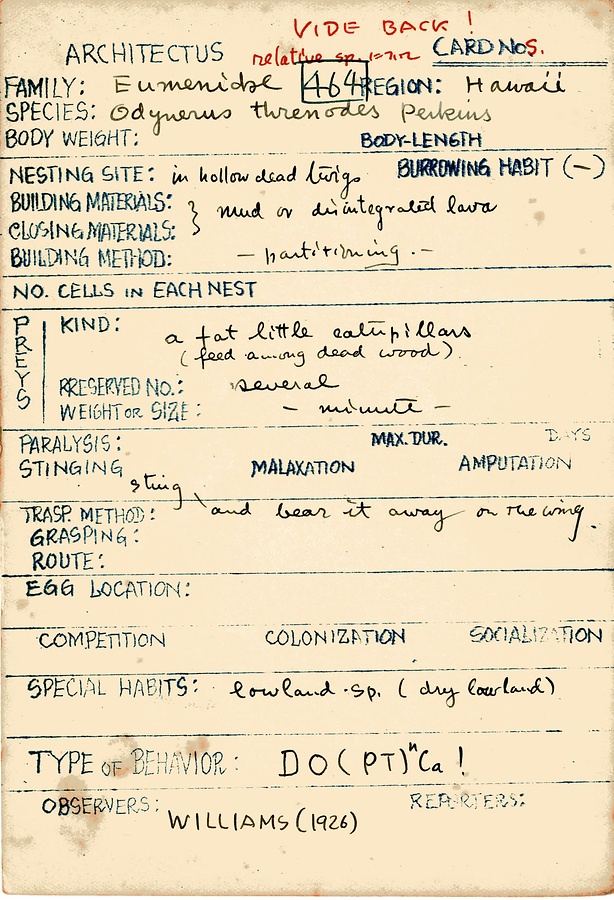 VIDE BACK !
ARCHITECTUS relative sp. CARD NOS.
FAMILY: Eumenidae 464 REGION: Hawaii
SPECIES: Odynerus threnodes Perkins
BODY WEIGHT: BODY-LENGTH
NESTING SITE: in hollow dead twigs BURROWING HABIT (-)
BUILDING MATERIALS: } mud or disintegrated lava
CLOSING MATERIALS:
BUILDING METHOD: - partitioning. -
NO. CELLS IN EACH NEST
PREYS
KIND: a fat little caterpillars
(feed among dead wood)
PRESERVED NO.: several
WEIGHT OR SIZE: - minute -
PARALYSIS: MAX. DUR. DAYS
STINGING sting MALAXATION AMPUTATION
TRASP. METHOD: and bear it away on the wing.
GRASPING:
ROUTE:
EGG LOCATION:
COMPETITION COLONIZATION SOCIALIZATION
SPECIAL HABITS: lowland sp. (dry lowland)
TYPE OF BEHAVIOR: DO(PT)ⁿCa !
OBSERVERS: REPORTERS:
WILLIAMS (1926)